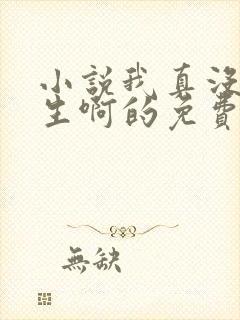 小說我真沒
生啊的免費
無缺